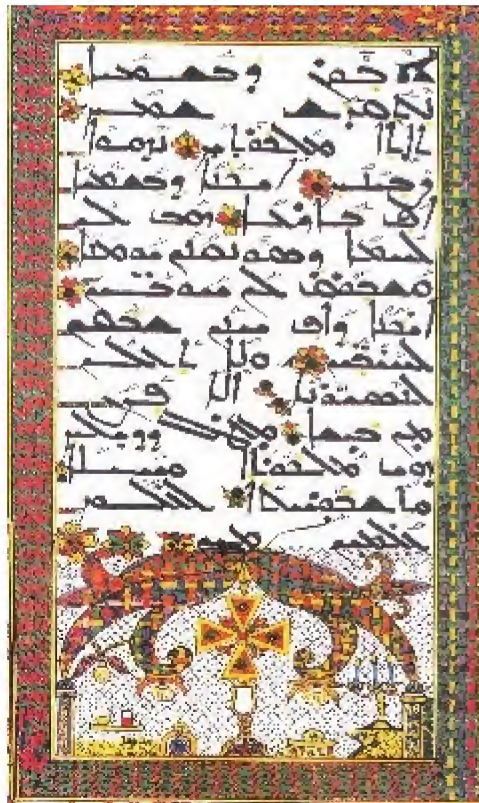 ܐܒܘܢ ܕܒܫܡܝܐ
ܢܬܩܕܫ ܫܡܟ
ܬܐܬܐ ܡܠܟܘܬܟ ܢܗܘܐ
ܨܒܝܢܟ ܐܝܟܢܐ ܕܒܫܡܝܐ
ܐܦ ܒܐܪܥܐ ܗܒ ܠܢ
ܠܚܡܐ ܕܣܘܢܩܢܢ ܝܘܡܢܐ
ܘܫܒܘܩ ܠܢ ܚܘܒܝܢ
ܐܝܟܢܐ ܕܐܦ ܚܢܢ ܫܒܩܢ
ܠܚܝܒܝܢ ܘܠܐ ܬܥܠܢ
ܠܢܣܝܘܢܐ ܐܠܐ ܦܨܢ
ܡܢ ܒܝܫܐ ܡܛܠ ܕܕܝܠܟ
ܗܝ ܡܠܟܘܬܐ ܘܚܝܠܐ
ܘܬܫܒܘܚܬܐ ܠܥܠܡ
ܥܠܡܝܢ ܐܡܝܢ